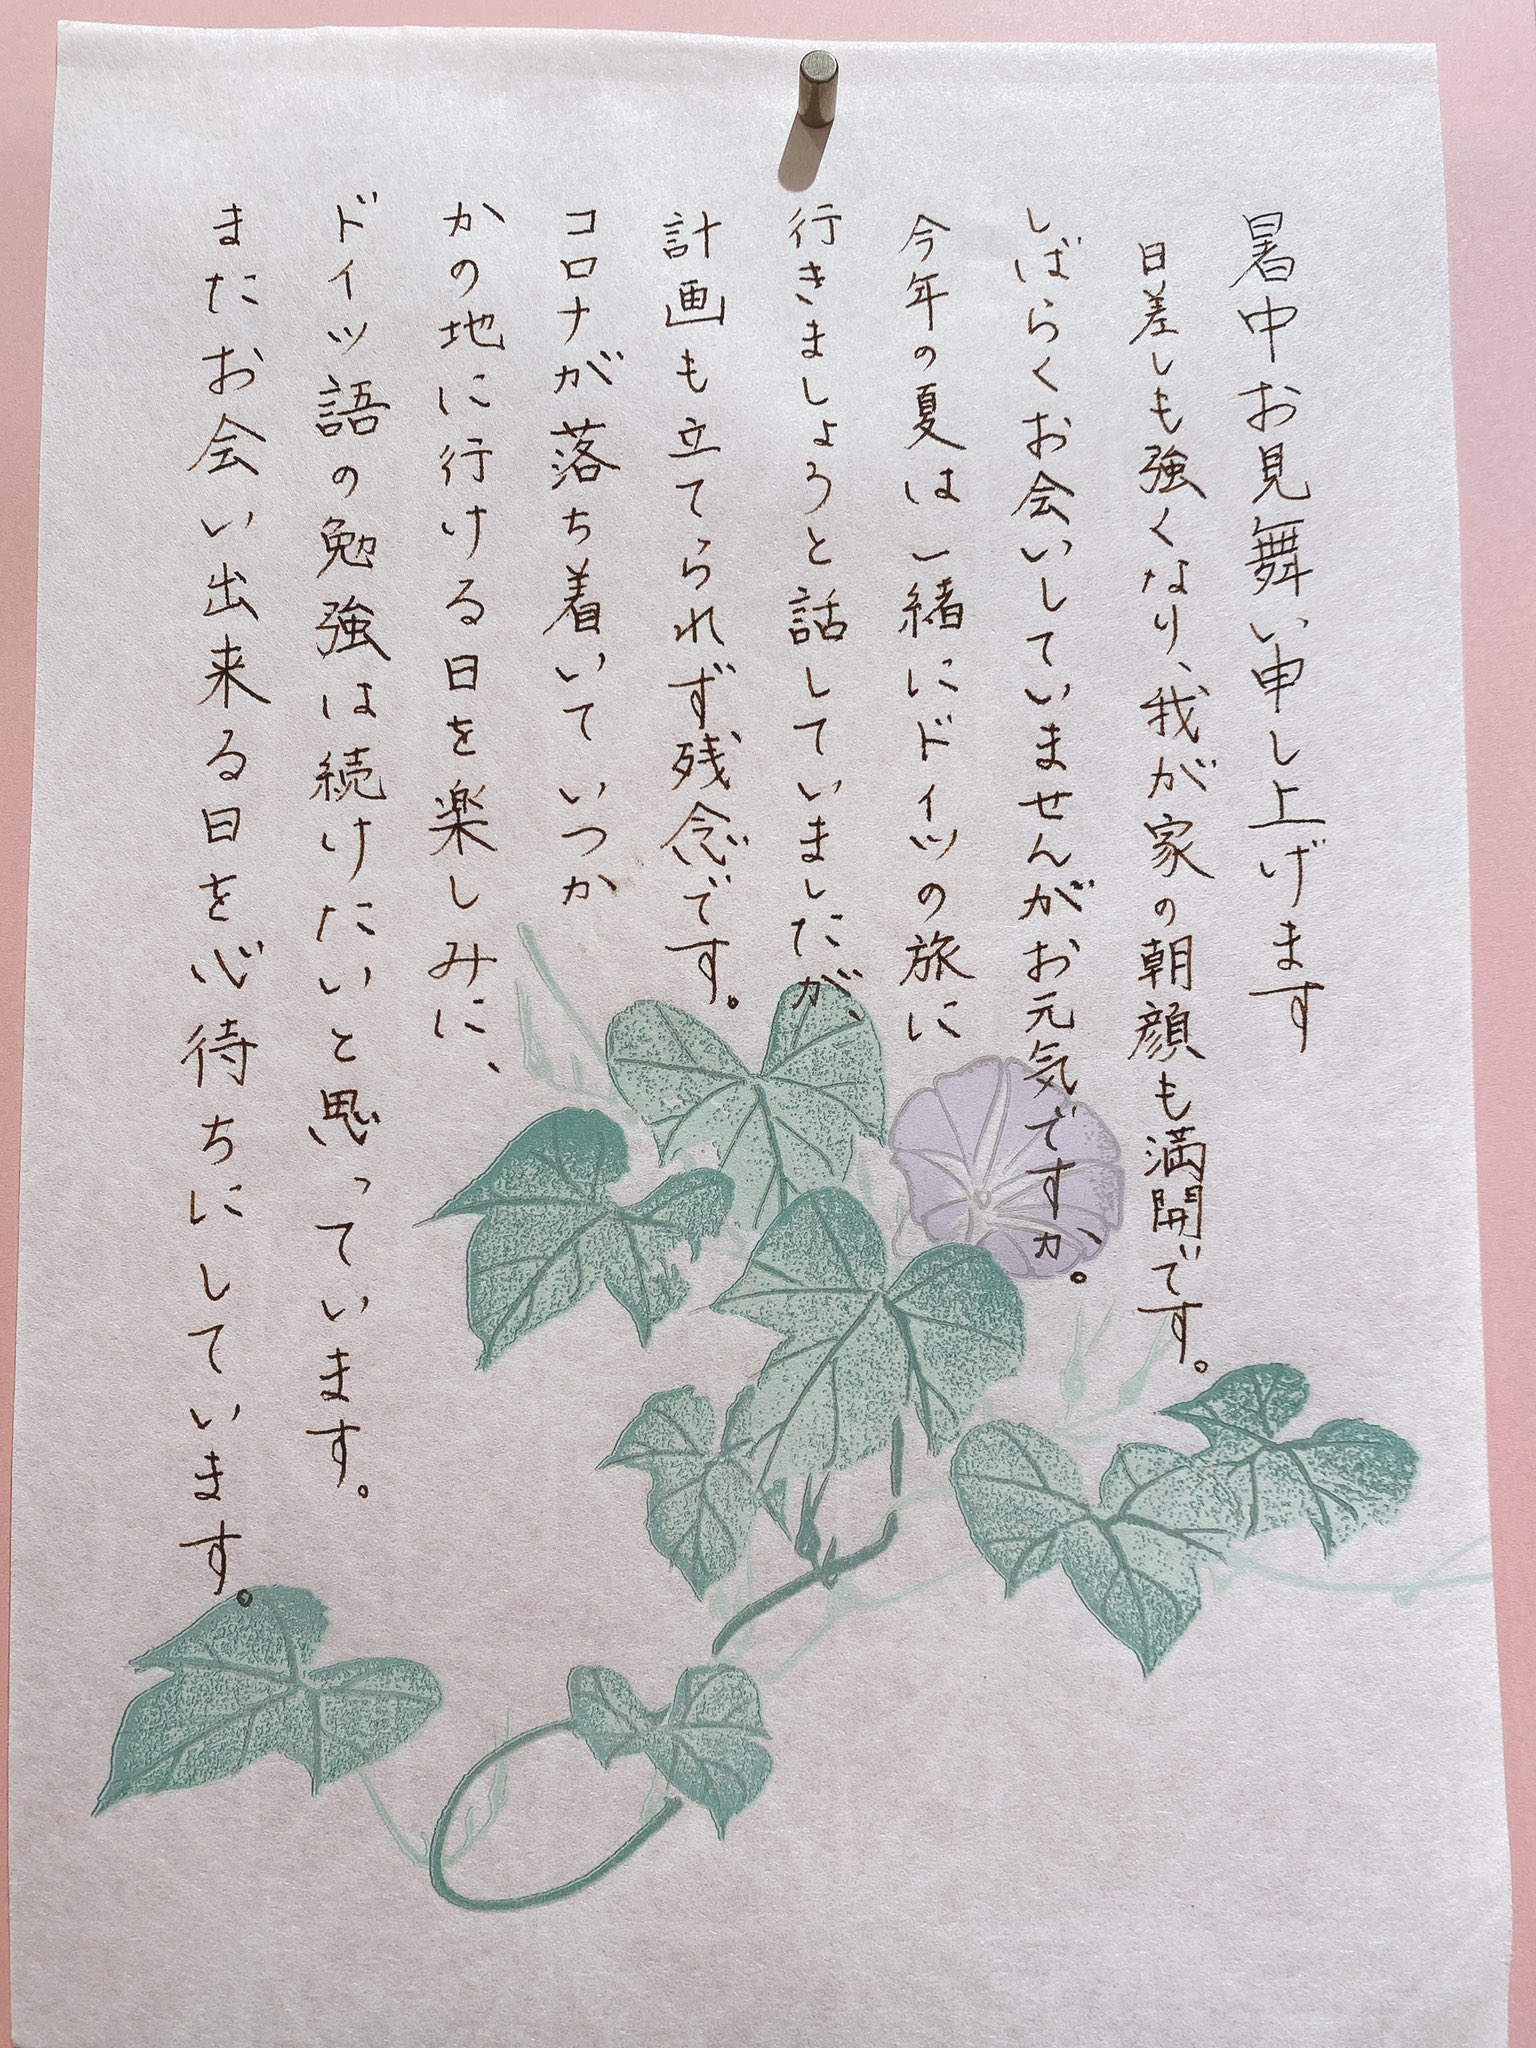 暑中お見舞い申し上げます
日差しも強くなり、我が家の朝顔も満開です。
しばらくお会いしていませんがお元気ですか。
今年の夏は一緒にドイツの旅に
行きましょうと話していましたが、
計画も立てられず残念です。
コロナが落ち着いていつか
かの地に行ける日を楽しみに、
ドイツ語の勉強は続けたいと思っています。
またお会い出来る日を心待ちにしています。